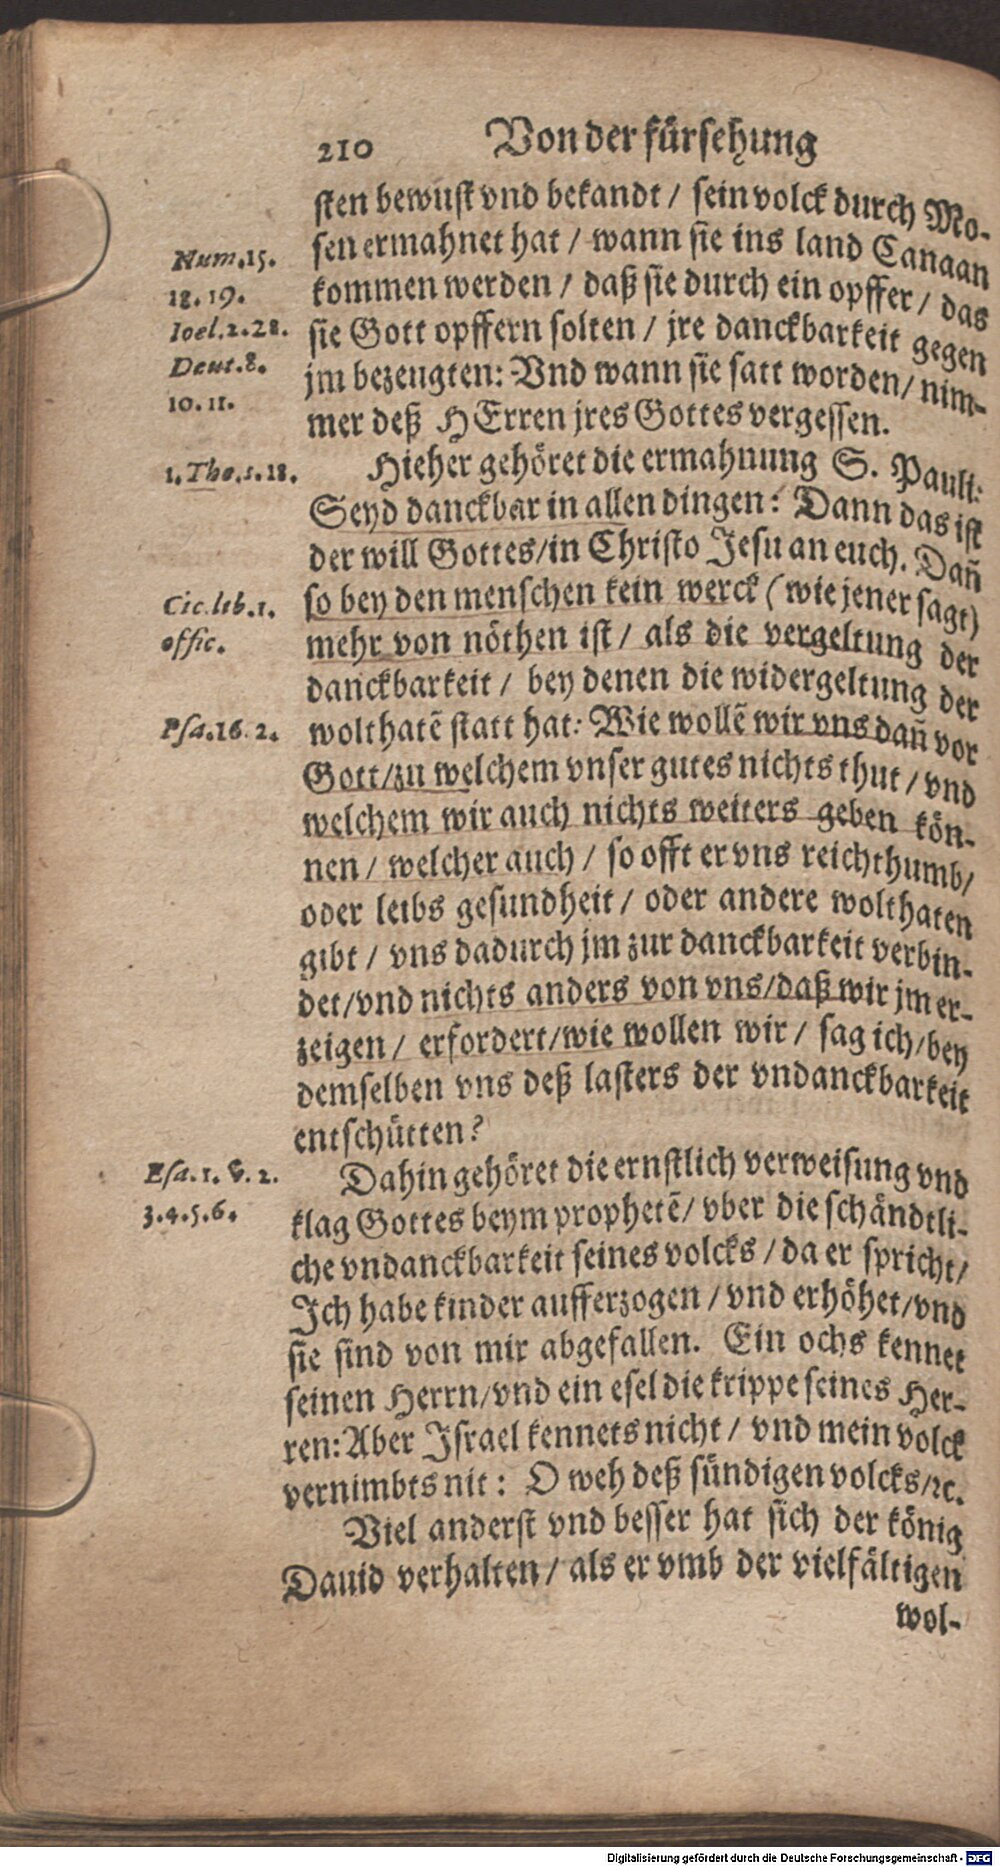 210 Von der fürsehung
sten bewust vnd bekandt / sein volck durch Mo-
sen ermahnet hat / wann sie ins land Canaan
Num.15.
18.19.
kommen werden / daß sie durch ein opffer / das
Ioel.2.28.
sie Gott opffern solten / jre danckbarkeit gegen
Deut.8.
10.11.
jm bezeugten: Vnd wann sie satt worden / nim-
mer deß HErren jres Gottes vergessen.
1.Thes.5.18.
Hieher gehöret die ermahnung S. Pauli:
Seyd danckbar in allen dingen: Dann das ist
der will Gottes/in Christo Jesu an euch. Dañ
Cic.lib.1.
offic.
so bey den menschen kein werck (wie jener sagt)
mehr von nöthen ist / als die vergeltung der
danckbarkeit / bey denen die widergeltung der
Psa.16.2.
wolthatē statt hat: Wie wollē wir vns dañ vor
Gott/zu welchem vnser gutes nichts thut / vnd
welchem wir auch nichts weiters geben kön-
nen / welcher auch / so offt er vns reichthumb/
oder leibs gesundheit / oder andere wolthaten
gibt / vns dadurch jm zur danckbarkeit verbin-
det/vnd nichts anders von vns/daß wir jm er-
zeigen / erfordert/wie wollen wir / sag ich/bey
demselben vns deß lasters der vndanckbarkeit
entschütten?
Esa.1.v.2.
3.4.5.6.
Dahin gehöret die ernstlich verweisung vnd
klag Gottes beym prophetē/ vber die schändtli-
che vndanckbarkeit seines volcks / da er spricht/
Ich habe kinder aufferzogen / vnd erhöhet/vnd
sie sind von mir abgefallen. Ein ochs kennet
seinen Herrn/vnd ein esel die krippe seines Her-
ren: Aber Israel kennets nicht / vnd mein volck
vernimbts nit: O weh deß sündigen volcks/ꝛc.
Viel anderst vnd besser hat sich der könig
Dauid verhalten / als er vmb der vielfältigen
wol-
Digitalisierung gefördert durch die Deutsche Forschungsgemeinschaft - DFG